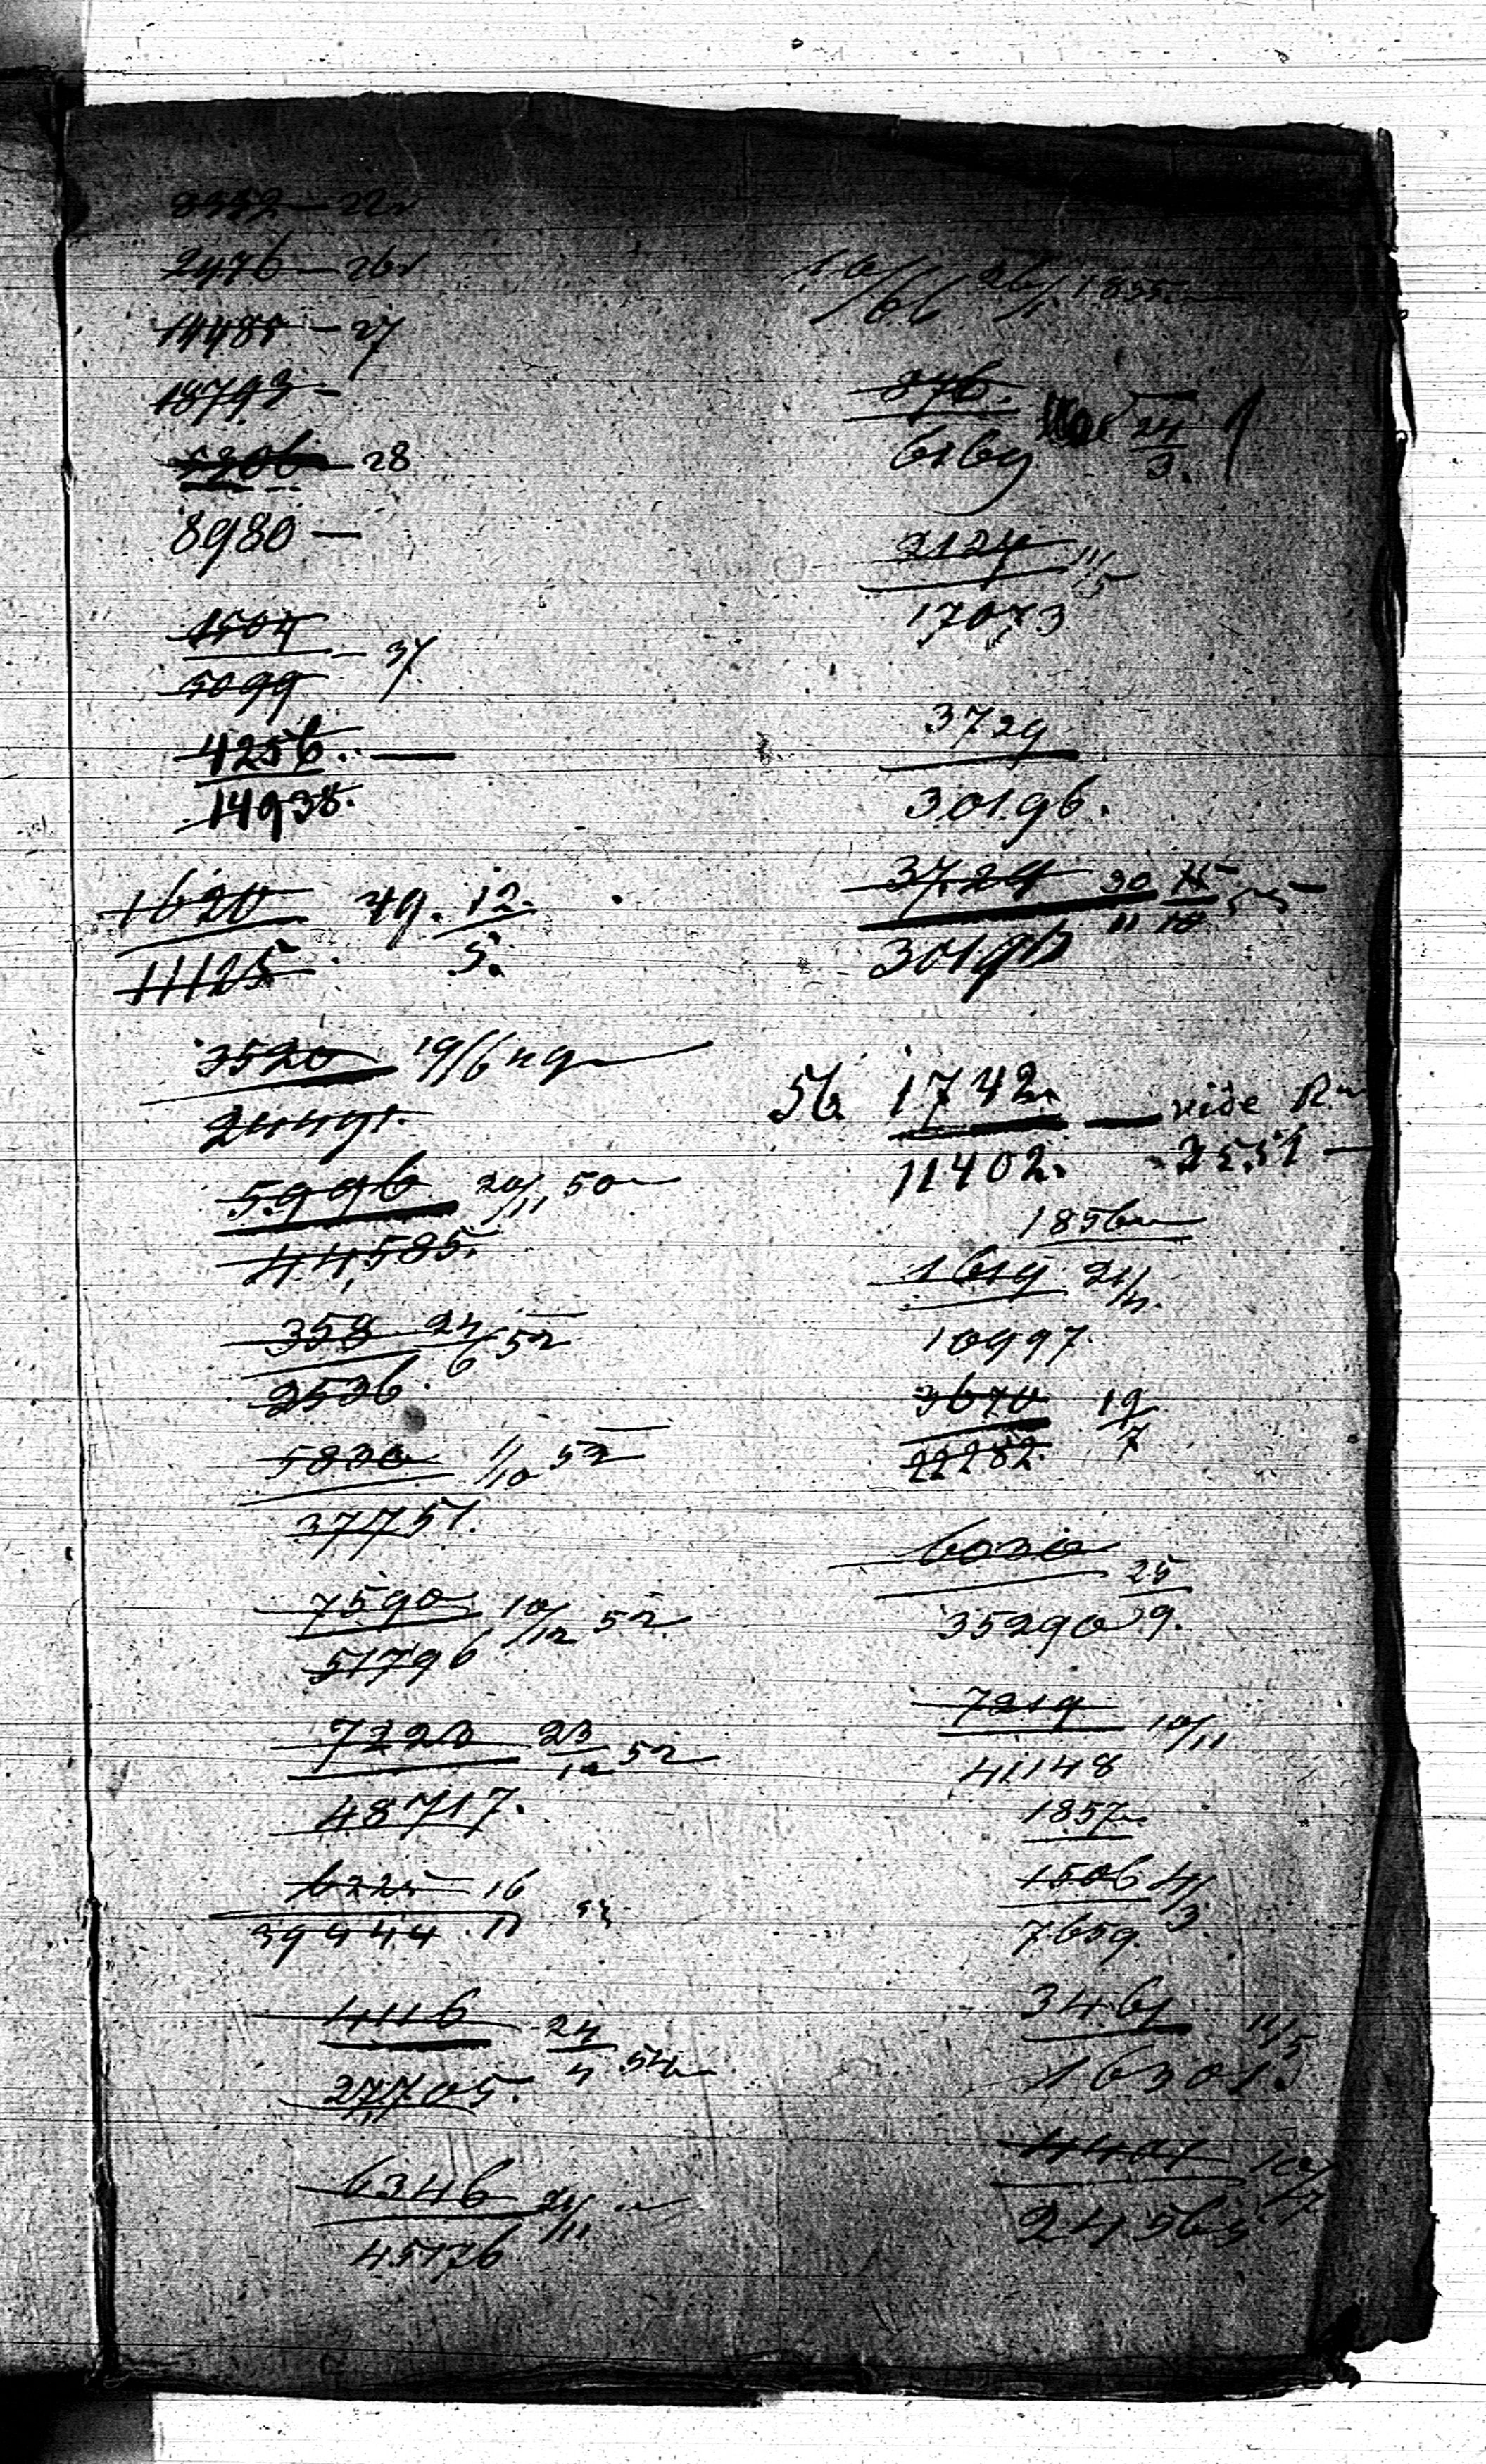 2476 — 26
14485 — 27
18793 —
28
8980 —
1504 — 37
5099
4256. —
14938.
1620 49. 12.
11125. 5.
3520 19/6 49
24491.
5996 20/11 50
44585.
358 24/6 52
2536.
5830 1/10 52
37751.
7590 10/12 52
51796
7223 23/12 52
48717.
6225 16
39444. 11
4116 24
27705. 4 54
6346 24/11
45176
1855
876. 24
6169 3.
2124 11/5
17073
3729
30196.
3724 30 15 55
30196 11 10
56 1742 — vide
11402. 2551 —
1856
1619 21/4.
10997.
3670 19
22282. 7
6030 25
35290 9.
7219 10/11
41148
1857
1506 4/3
7659.
3461 11/5
16301
4401 10/7
24565